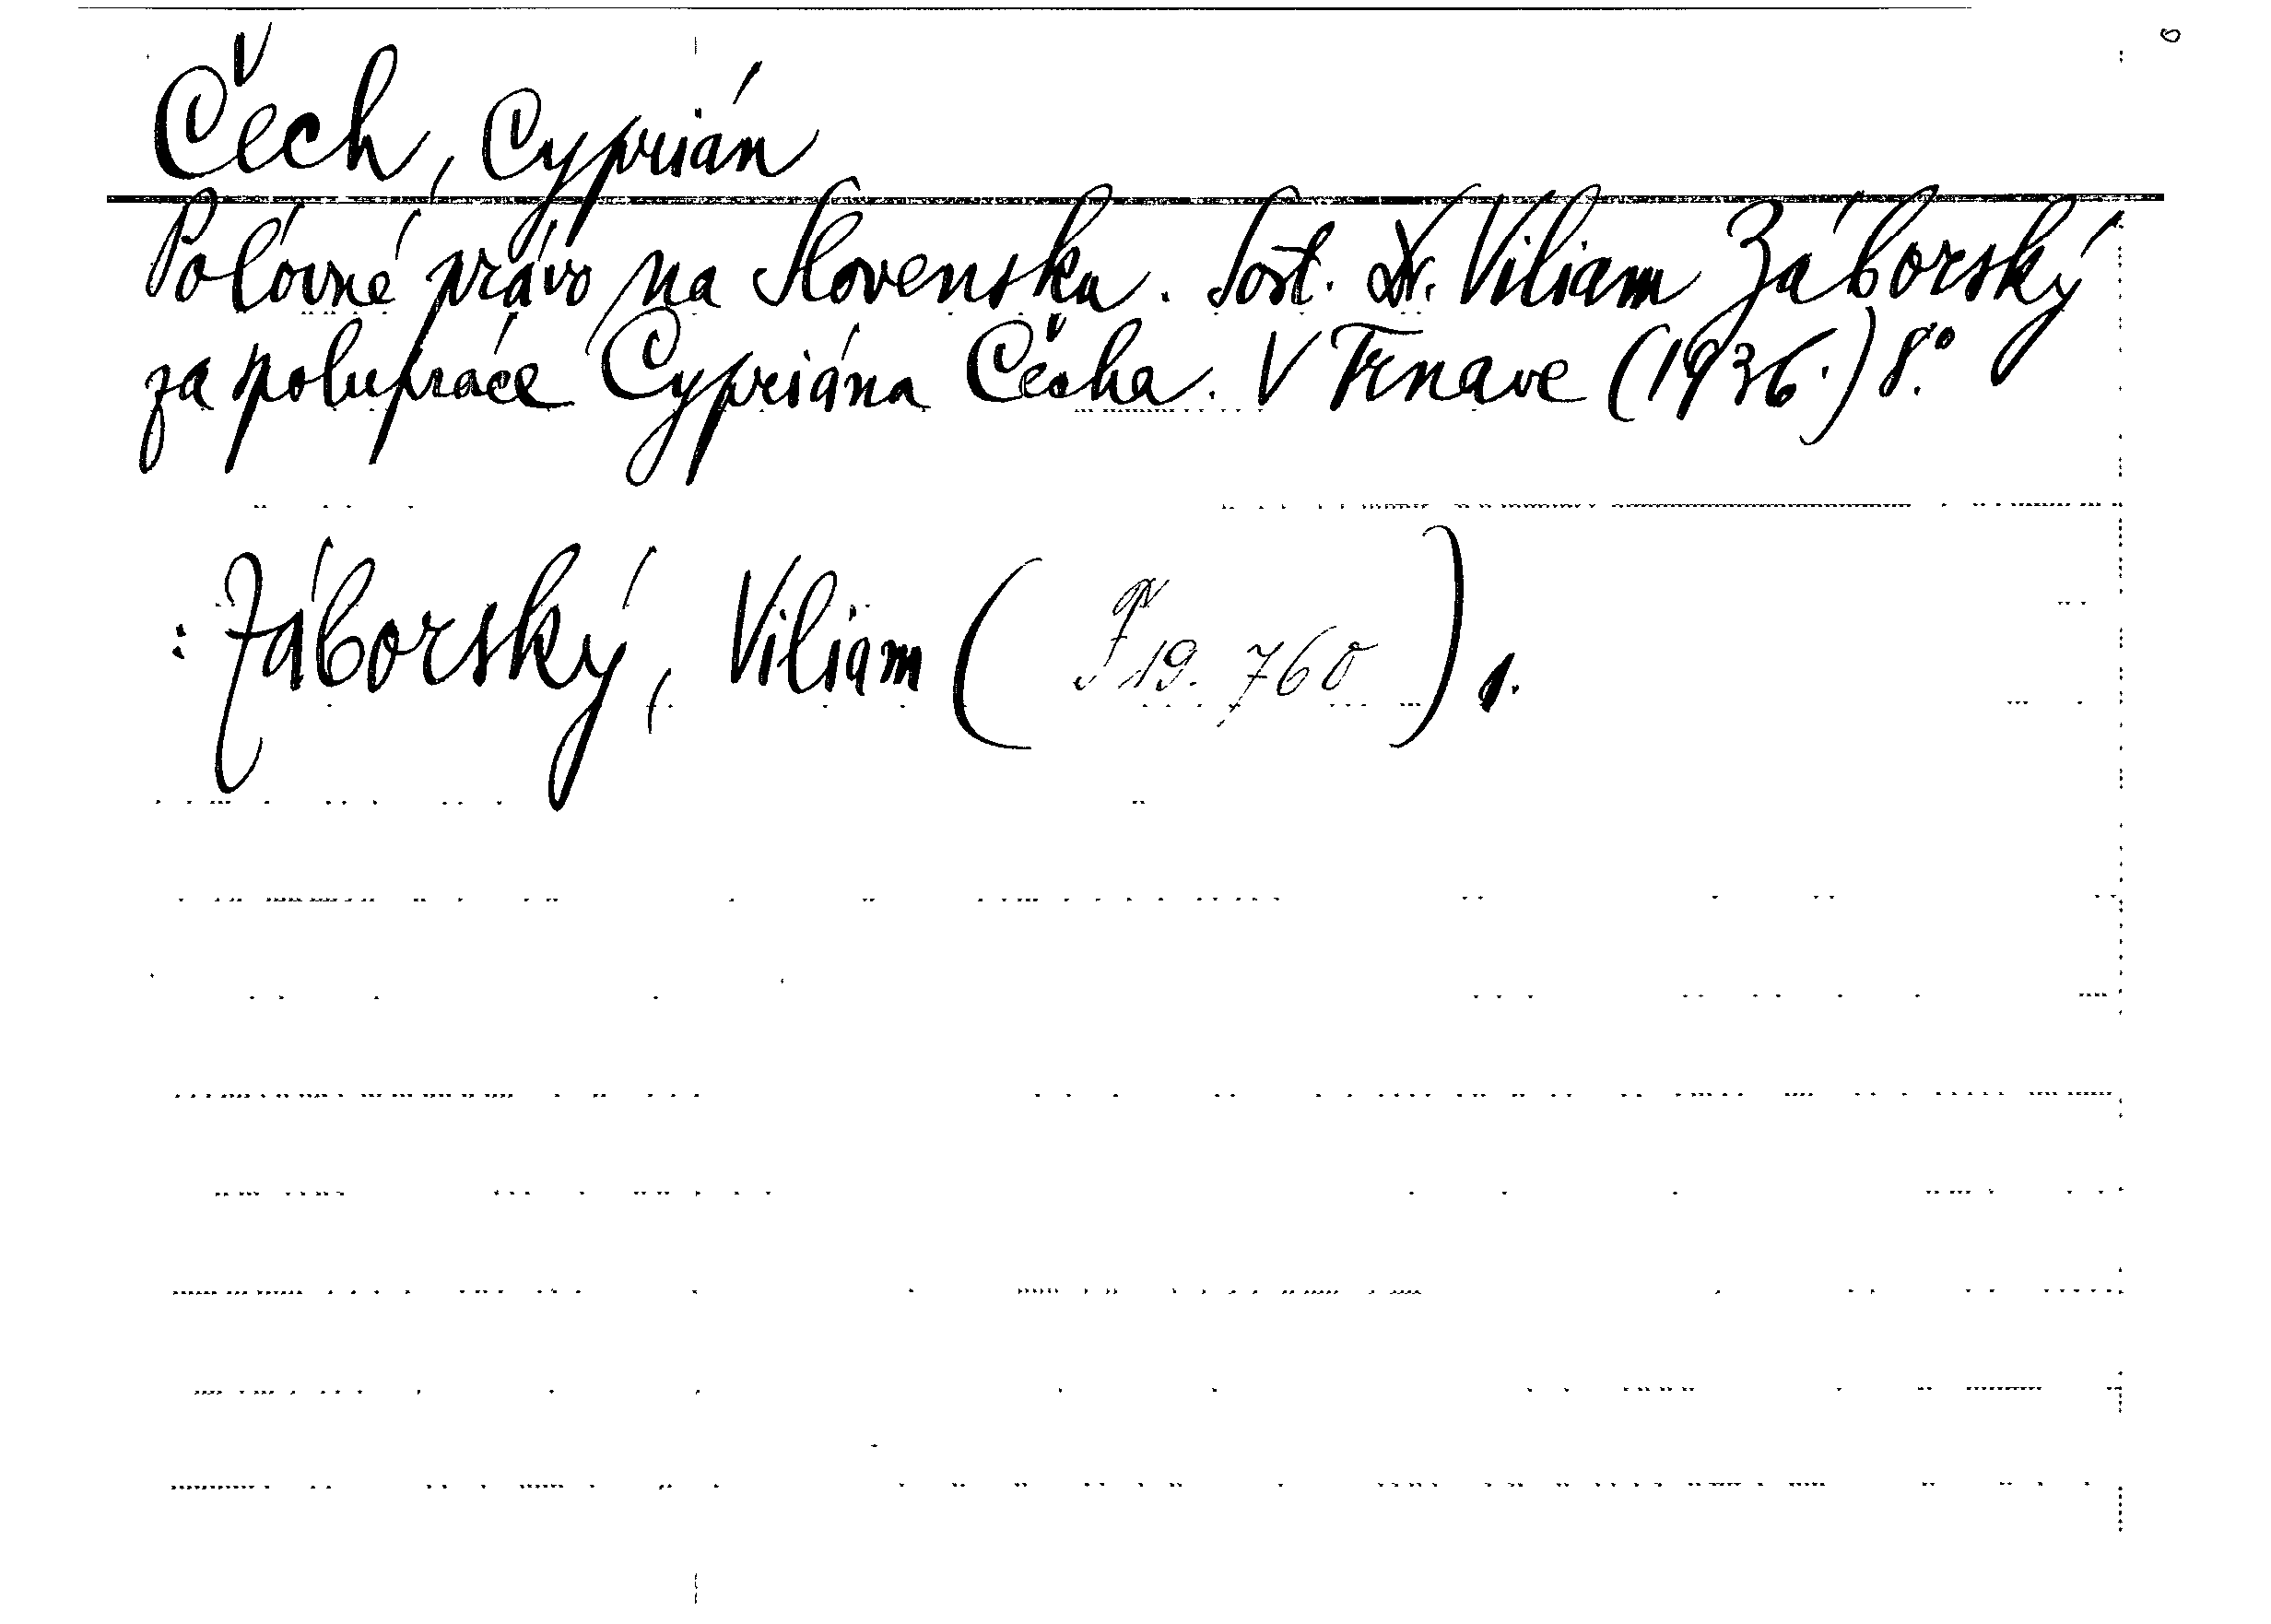 Čech, Cyprián
Poľovné právo na Slovensku. Sost. Dr. Viliam Záborský
za polupráce Cypriána Čecha. V Trnave (1936.) 8.°
: Záborský, Viliam ( 19.760 ) 1.